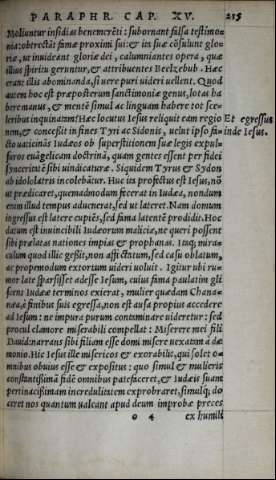 PARAPHR. CAP. XV. 215
Moliuntur insidias benemeriti: subornant falsa testimo-
nia: obtrectāt famæ proximi sui: & ijs suæ cōsulunt glo-
riæ, ut inuideant gloriæ dei, calumniantes opera, quæ
illius spiritu geruntur, & attribuentes Beelzebub. Hæc
erant illis abominanda, si uere puri uideri uellent. Quod
autem hoc est præposterum sanctimoniæ genus, lotas ha
bere manus, & mentē simul ac linguam habere tot sce-
leribus inquinatam? Hæc locutus Iesus reliquit eam regio
Et egressus
nem, & concessit in fines Tyri ac Sidonis, uelut ipso fa-
inde Iesus.
cto uaticināns Iudæos ob superstitionem suæ legis expul-
suros euāgelicam doctrinā, quam gentes essent per fidei
synceritatē sibi uindicaturæ. Siquidem Tyrus & Sydon
ab idololatris incolebātur. Huc ita profectus est Iesus, nō
ut prædicaret, quemadmodum fecerat in Iudæa, nondum
enim illud tempus aduenerat, sed ut lateret. Nam domum
ingressus est latere cupiēs, sed fama latentē prodidit. Hoc
datum est inuincibili Iudæorum maliciæ, ne queri possent
sibi prælatas nationes impias & prophanas. Itaq; mira-
culum quod illic gessit, non affectatum, sed casu oblatum,
ac propemodum extortum uideri uoluit. Igitur ubi ru-
mor late sparsisset adesse Iesum, cuius fama paulatim gli
scens Iudææ terminos exierat, mulier quædam Chana-
næa, è finibus suis egressa, non est ausa propius accedere
ad Iesum: ne impura purum contaminare uideretur: sed
procul clamore miserabili compellat: Miserere mei fili
Dauid: narrans sibi filiam esse domi misere uexatam à dæ
monio. Hic Iesus ille misericors & exorabilis, qui solet o-
mnibus obuius esse & expositus: quo simul & mulieris
constantissimā fidē omnibus patefaceret, & Iudæis suam
pertinacissimam incredulitatem exprobraret, simulq; do
ceret nos quantum ualeant apud deum improbæ preces
o 4 ex humili